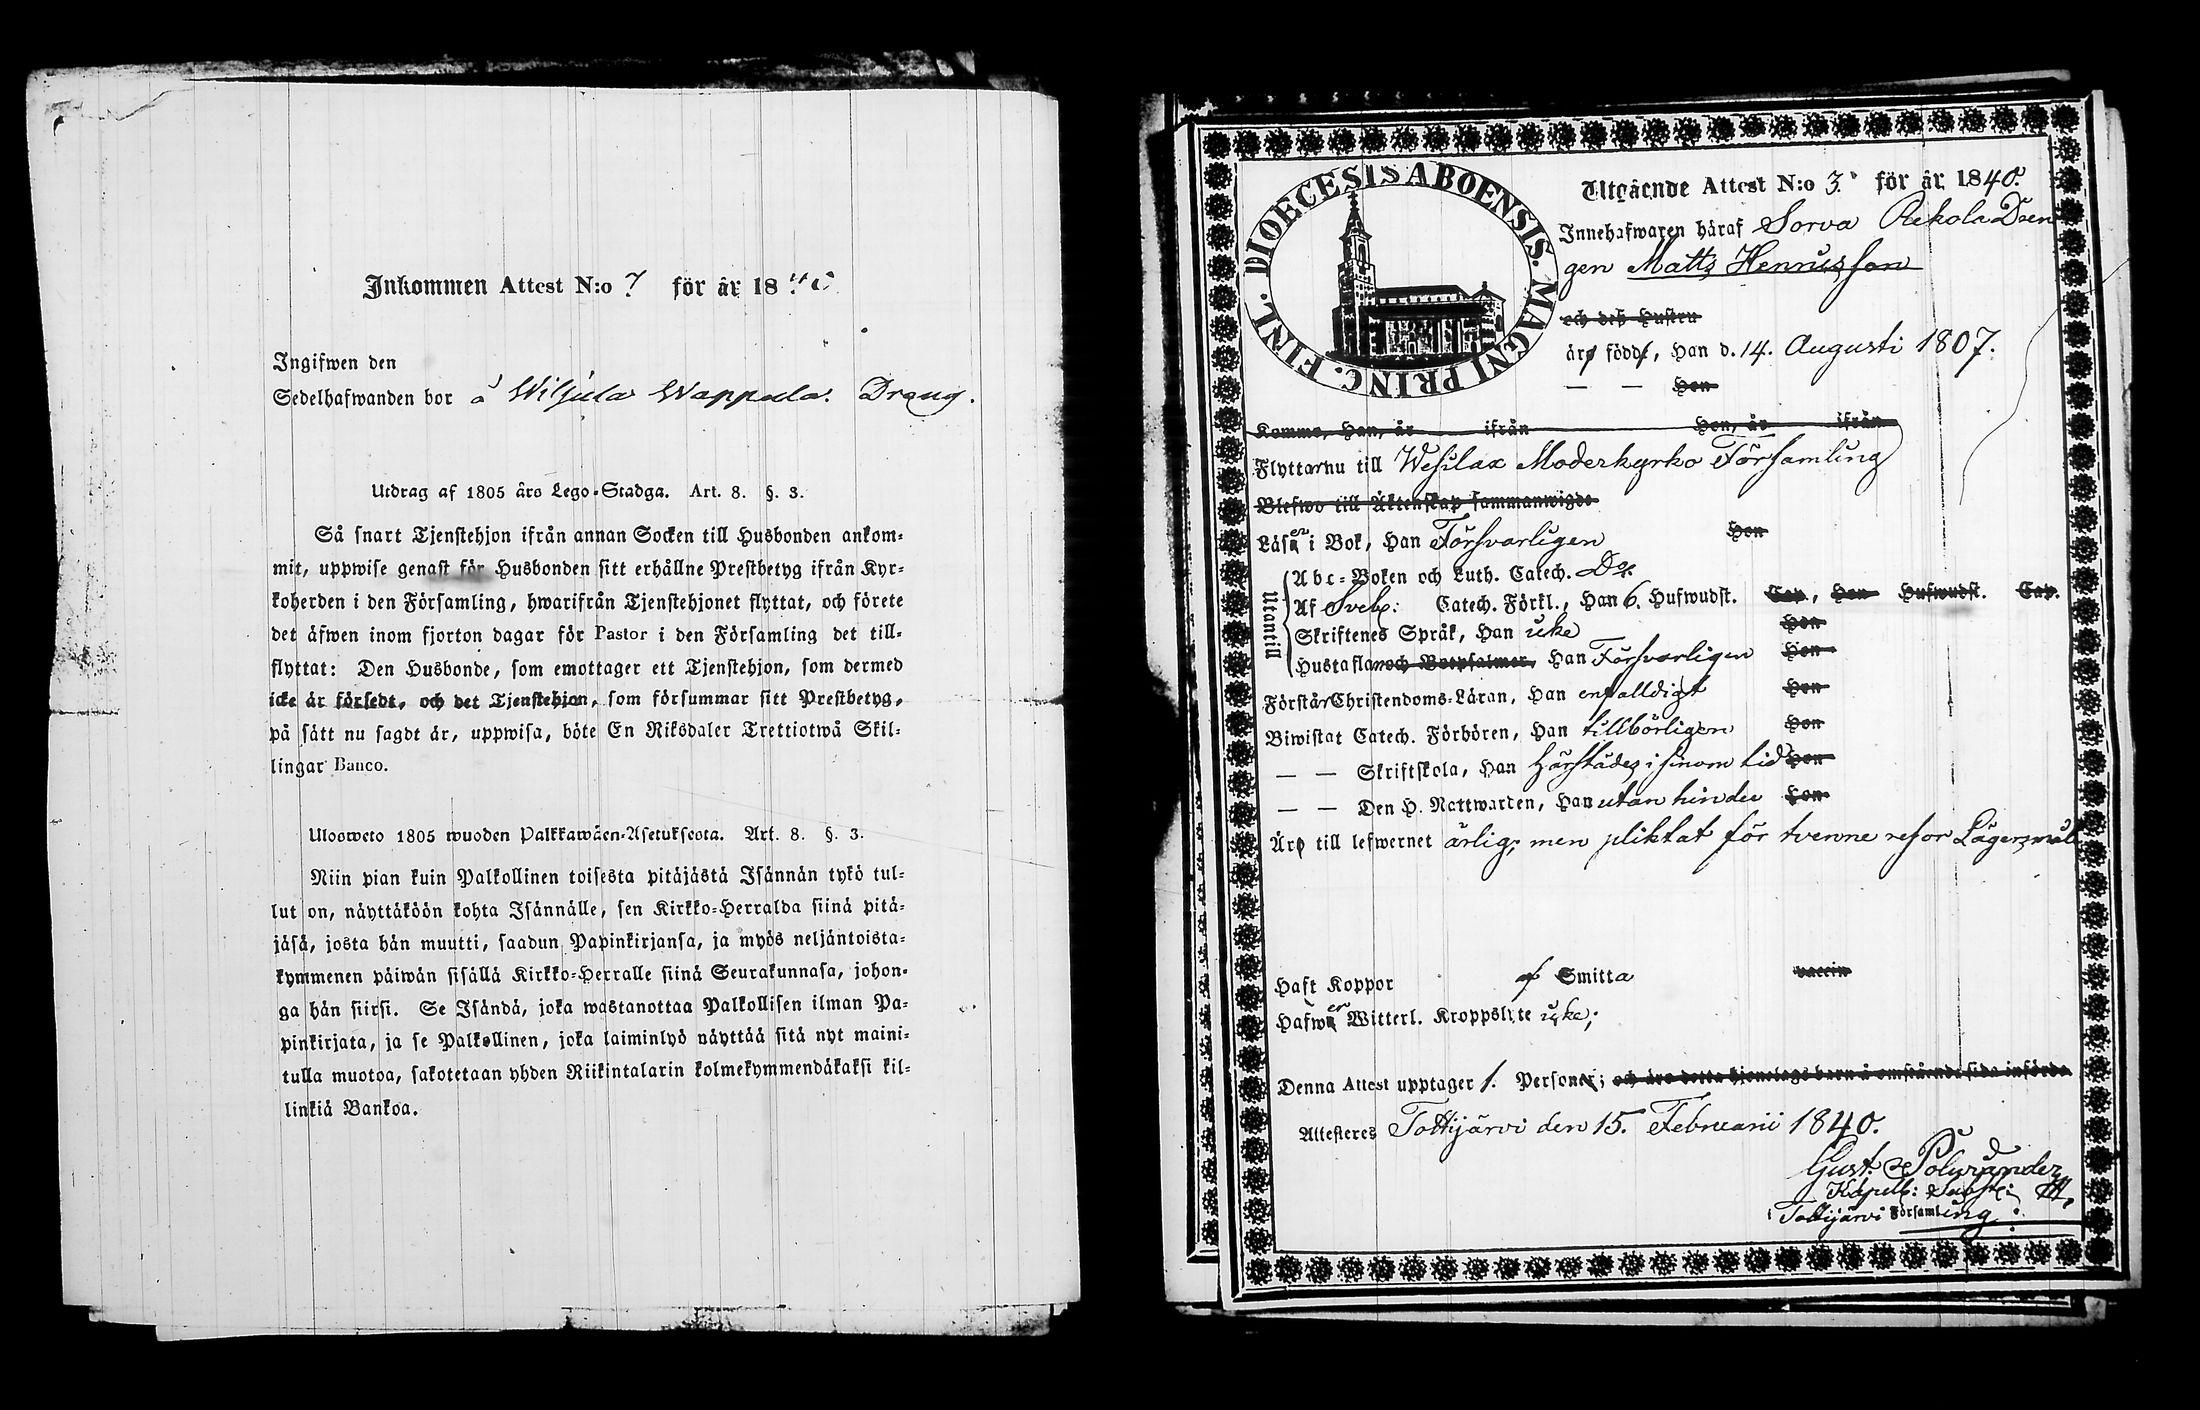 Inkommen Attest N:o 7 för år 1840
Ingifwen den
Sedelhafwanden bor å Wiljula Wappula. Dräng.
Utdrag af 1805 års Lego-Stadga. Art. 8. §. 3.
Så snart Tjenstehjon ifrån annan Socken till Husbonden ankom-
mit, uppwise genast för Husbonden sitt erhållne Prestbetyg ifrån Kyr-
koherden i den Församling, hwarifrån Tjenstehjonet flyttat, och förete
det äfwen inom fjorton dagar för Pastor i den Församling det till-
flyttat: Den Husbonde, som emottager ett Tjenstehjon, som dermed
icke är försedt, och det Tjenstehjon, som försummar sitt Prestbetyg,
på sätt nu sagdt är, uppwisa, böte En Riksdaler Trettiotwå Skil-
lingar Banco.
Ulosweto 1805 wuoden Palkkawäen-Asetuksesta. Art. 8. §. 3.
Niin pian kuin Palkollinen toisesta pitäjästä Isännän tykö tul-
lut on, näyttäköön kohta Isännälle, sen Kirkko-Herralda siinä pitä-
jäsä, josta hän muutti, saadun Papinkirjansa, ja myös neljäntoista-
kymmenen päiwän sisällä Kirkko-Herralle siinä Seurakunnasa, johon-
ga hän siirsi. Se Isändä, joka wastanottaa Palkollisen ilman Pa-
pinkirjata, ja se Palkollinen, joka laiminlyö näyttää sitä nyt maini-
tulla muotoa, sakotetaan yhden Riikintalarin kolmekymmendäkaksi kil-
linkiä Bankoa.
DIOECESIS ABOENSIS. MAGNI PRINC. FINL.
Utgående Attest N:o 3. för år 1840.
Innehafwaren häraf Sorva Rekola Drän
gen Matts Henricsson
och deß Hustru
äro född, Han d. 14. Augusti 1807.
— — Hon
Komne, Han, år ifrån Hon, år ifrån
Flyttar nu till Wesilax Moderkyrko Församling
Blefwo till Äktenskap sammanwigde
Läser i Bok, Han Försvarligen Hon
Utantill
Abc-Boken och Luth. Catech. Do.
Af Sveb: Catech. Förkl., Han 6. Hufwudst. Cap., Hon Hufwudst. Cap.
Skriftenes Språk, Han icke Hon
Hustaflan och Botpsalmer, Han Försvarligen Hon
Förstår Christendoms-Läran, Han enfalldigt Hon
Biwistat Catech. Förhören, Han tillbörligen Hon
— — Skriftskola, Han härstädes i sinom tid Hon
— — Den H. Nattwarden, Han utan hinder Hon
Äro till lefwernet ärlig; men pliktat för tvenne resor Lägersmål
Haft Koppor af Smitta vaccin
Hafwer Witterl. Kroppslyte icke;
Denna Attest upptager 1. Person; och äro detta hjonelags barn å omstående sida införde
Attesteres Tottijärvi den 15. Februarii 1840.
Gust. Polviander
Kapell: Subst:
i Tottijärvi Församling: